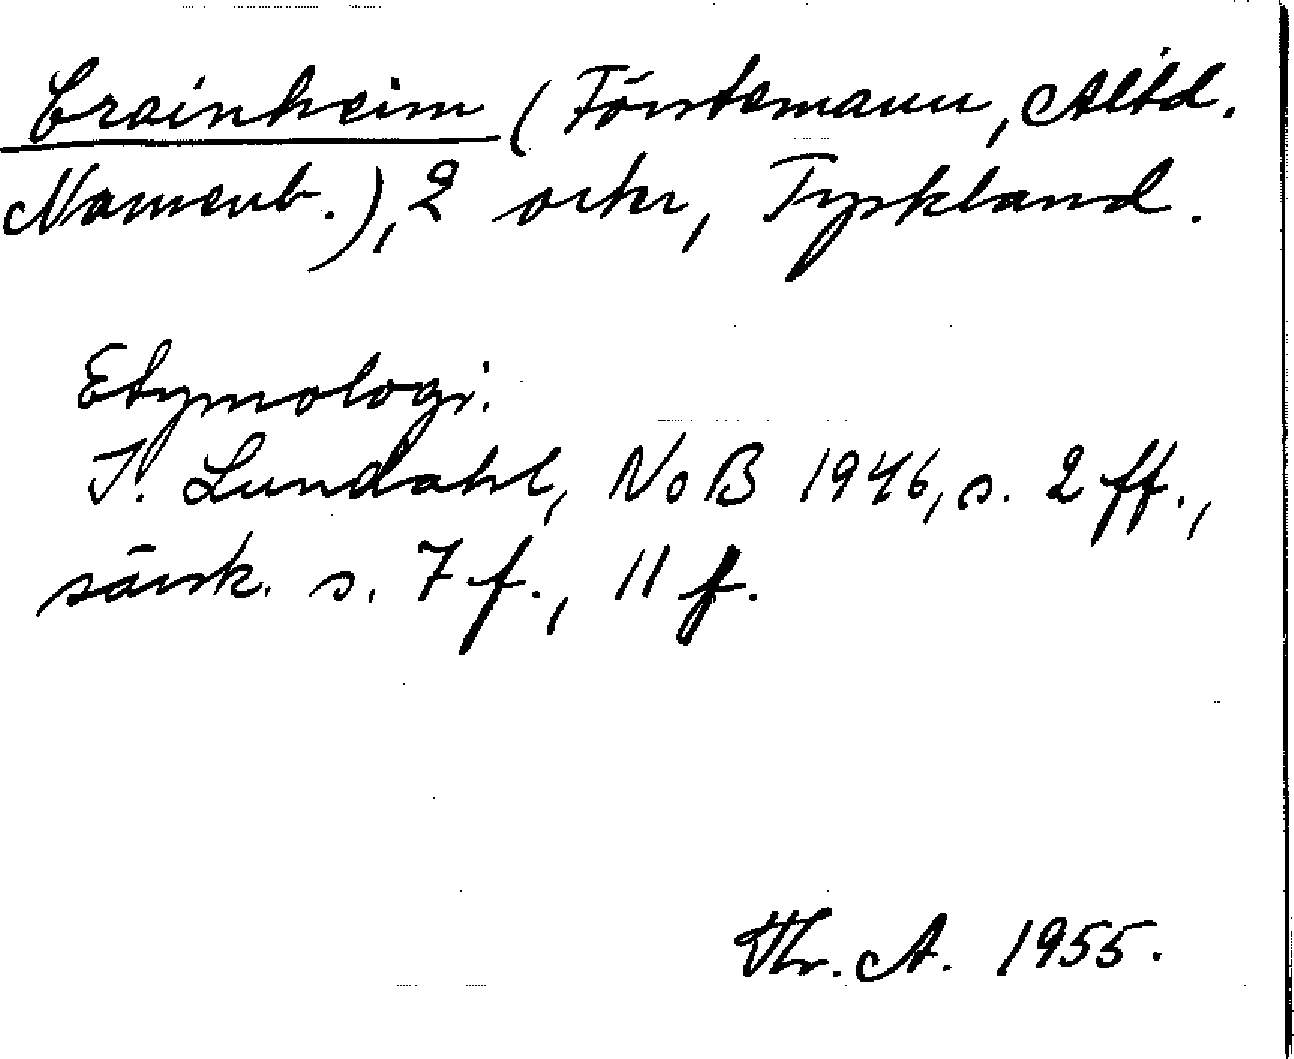 Crainheim (Förstemann, Altd.
Namenb.), 2 orter, Tyskland.
Etymologi.
I. Lundahl, NoB 1946, s. 2 ff.,
särsk. s. 7 f., 11 f.
Thr. A. 1955.